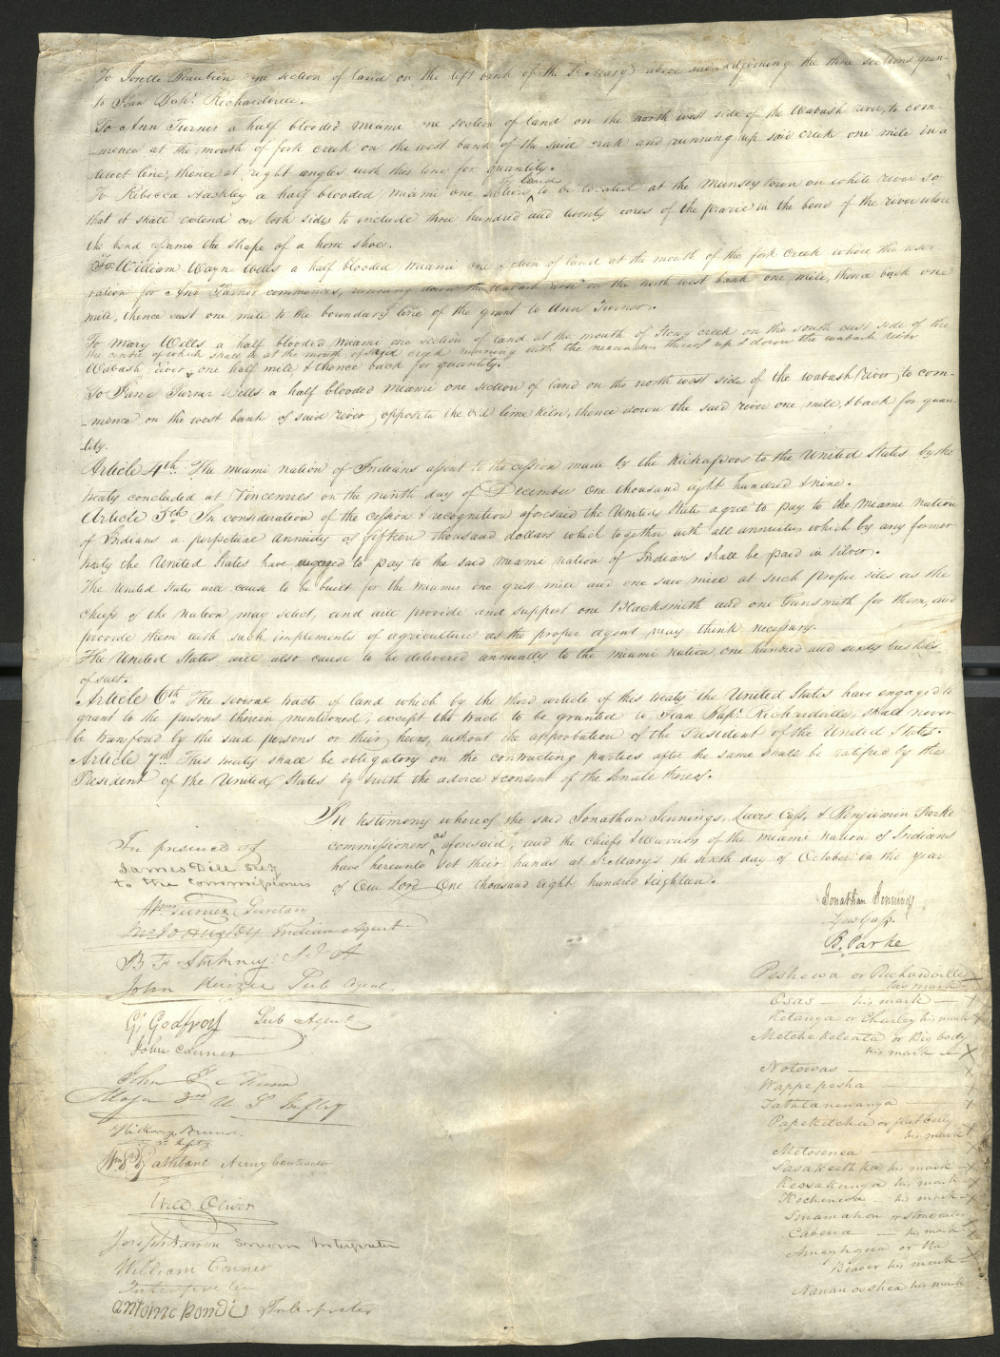 To Josette Beaubien one section of land on the left bank of the St. Marys above and adjoining the three sections gran-
to Jean Bapt. Richardville.
To Ann Turner a half blooded Miami one section of land on the north west side of the Wabash river, to com-
-mence at the mouth of fork creek on the west bank of the said creek and running up said creek one mile in a
direct line, thence at right angles with this line for quantity.
To Rebecca Hackley a half blooded Miami one section of land to be located at the Munsey town on white river so
that it shall extend on both sides to include three hundred and twenty acres of the prairie in the bend of the river where
the bend assumes the shape of a horse shoe.
To William Wayne Wells a half blooded Miami one section of land at the mouth of the fork creek where the reser-
vation for Ann Turner commences, running down the Wabash river on the north west bank one mile, thence back one
mile, thence east one mile to the boundary line of the grant to Ann Turner.
To Mary Wells a half blooded Miami one section of land at the mouth of Stony creek on the south east side of the
the centre of which shall be at the mouth of said creek running with the meanders thereof up & down the wabash river
Wabash river, one half mile & thence back for quantity.
To Jane Turner Wells a half blooded Miami one section of land on the north west side of the wabash river, to com-
-mence on the west bank of said river opposite the old lime kiln, thence down the said river one mile, & back for quan-
tity.
Article 4th. The Miami nation of Indians assent to the cession made by the Kickapoos to the United States by the
treaty concluded at Vincennes on the ninth day of December one thousand eight hundred & nine.
Article 5th. In consideration of the cession & recognition aforesaid the United States agree to pay to the Miami Nation
of Indians a perpetual annuity of fifteen thousand dollars which together with all annuities which by any former
treaty the United States have engaged to pay to the said Miami nation of Indians shall be paid in silver.
The United States will cause to be built for the Miamis one grist mill and one saw mill at such proper sites as the
chiefs of the nation may select, and will provide and support one Blacksmith and one Gunsmith for them, and
provide them with such implements of agriculture as the proper agent may think necessary.
The United States will also cause to be delivered annually to the Miami nation one hundred and sixty bushels
of salt.
Article 6th. The several tracts of land which by the third article of this treaty the United States have engaged to
grant to the persons therein mentioned, except the tracts to be granted to Jean Bapt. Richardville, shall never
be transferred by the said persons or their heirs, without the approbation of the President of the United States.
Article 7th. This treaty shall be obligatory on the contracting parties after the same shall be ratified by the
President of the United States by & with the advice & consent of the Senate thereof.
In testimony whereof the said Jonathan Jennings, Lewis Cass, & Benjamin Parke
commissioners as aforesaid, and the chiefs & Warriors of the Miami nation of Indians
have hereunto set their hands at St Mary's the sixth day of October in the year
of Our Lord One thousand eight hundred & eighteen.
In presence of
James Dill Secy
to the Commissioners
Wm Turner Secretary
Jno Johnston Indian Agent
B. F. Stickney S. I. A.
John Kenzie Sub Agent.
G: Godfroy Sub Agent
John Conner
John F. Chunn
Major 3rd U. S. Infty
Wm P Rathbone Army Contractor
Will Oliver
Joseph Barron Sworn Interpreter
William Conner
Interpreter
antoine bondi Interpreter
Jonathan Jennings
Lew Cass
B. Parke
Peshewa or Richardville
his mark X
Osas — his mark — X
Ketanga or Charley his mark X
Metche Keteata or Big body
his mark — X
Notawas X
Wappepesha X
Tatalanemanga X
Papskeecha or flat belly
his mark X
Metosenea X
Sasakeethka his mark X
Keosakunga his mark X
Kochenna — his mark X
Sinamahon or Stone eater
Cabema — his mark X
Ameghqua or the
Beaver his mark X
Nawanoshea his mark